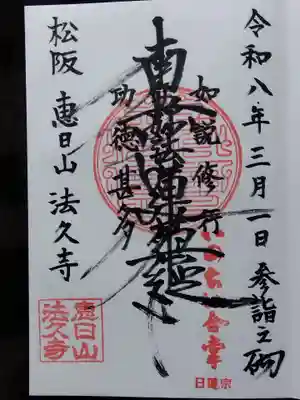 令和八年三月一日 参詣之砌
如説修行
南無妙法蓮華経
功徳甚多
松阪 恵日山 法久寺
恵日山
法久寺
日蓮宗